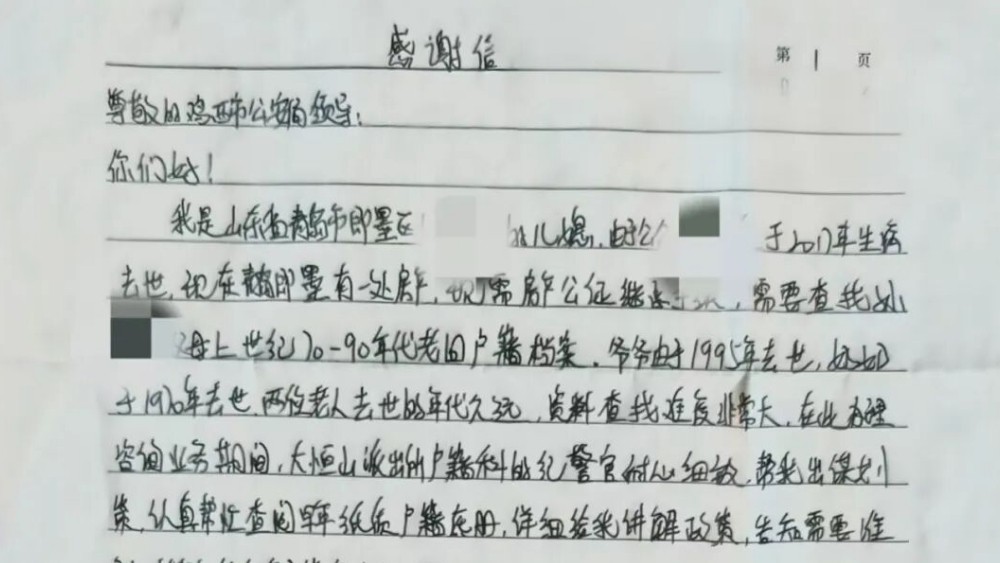 感谢信
第 1 页
尊敬的鸡西市公安局领导:
你们好!
我是山东省青岛市即墨区 的儿媳,由于公 于2017年生病
去世,现在青岛即墨有一处房产,现需房产公证继承 ,需要查找处
父母上世纪70-90年代老旧户籍档案。爷爷由于1995年去世,奶奶
于1970年去世,两位老人去世的年代久远,资料查找难度非常大,在此办理
咨询业务期间,大恒山派出所户籍科的纪警官耐心细致,帮我出谋划
策,认真帮忙查阅早年纸质户籍底册,详细给我讲解政策,告知需要准